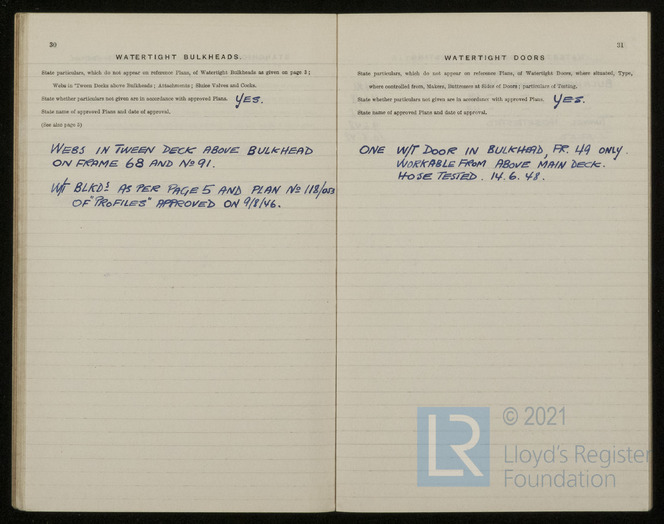 30
WATERTIGHT BULKHEADS.
State particulars, which do not appear on reference Plans, of Watertight Bulkheads as given on page 5 ;
Webs in 'Tween Decks above Bulkheads ; Attachments ; Sluice Valves and Cocks.
State whether particulars not given are in accordance with approved Plans. YES.
State name of approved Plans and date of approval.
(See also page 5)
WEBS IN TWEEN DECK ABOVE BULKHEAD
ON FRAME 68 AND No 91.
W/T BLKDS AS PER PAGE 5 AND PLAN No 118/053
OF "PROFILES" APPROVED ON 9/8/46.
31
WATERTIGHT DOORS
State particulars, which do not appear on reference Plans, of Watertight Doors, where situated, Type,
where controlled from, Makers, Stiffeners at Sides of Doors ; particulars of Testing.
State whether particulars not given are in accordance with approved Plans. YES.
State name of approved Plans and date of approval.
ONE W/T DOOR IN BULKHEAD, FR. 49 ONLY.
WORKABLE FROM ABOVE MAIN DECK.
HOSE TESTED. 14.6.48.
LR
© 2021
Lloyd's Register
Foundation